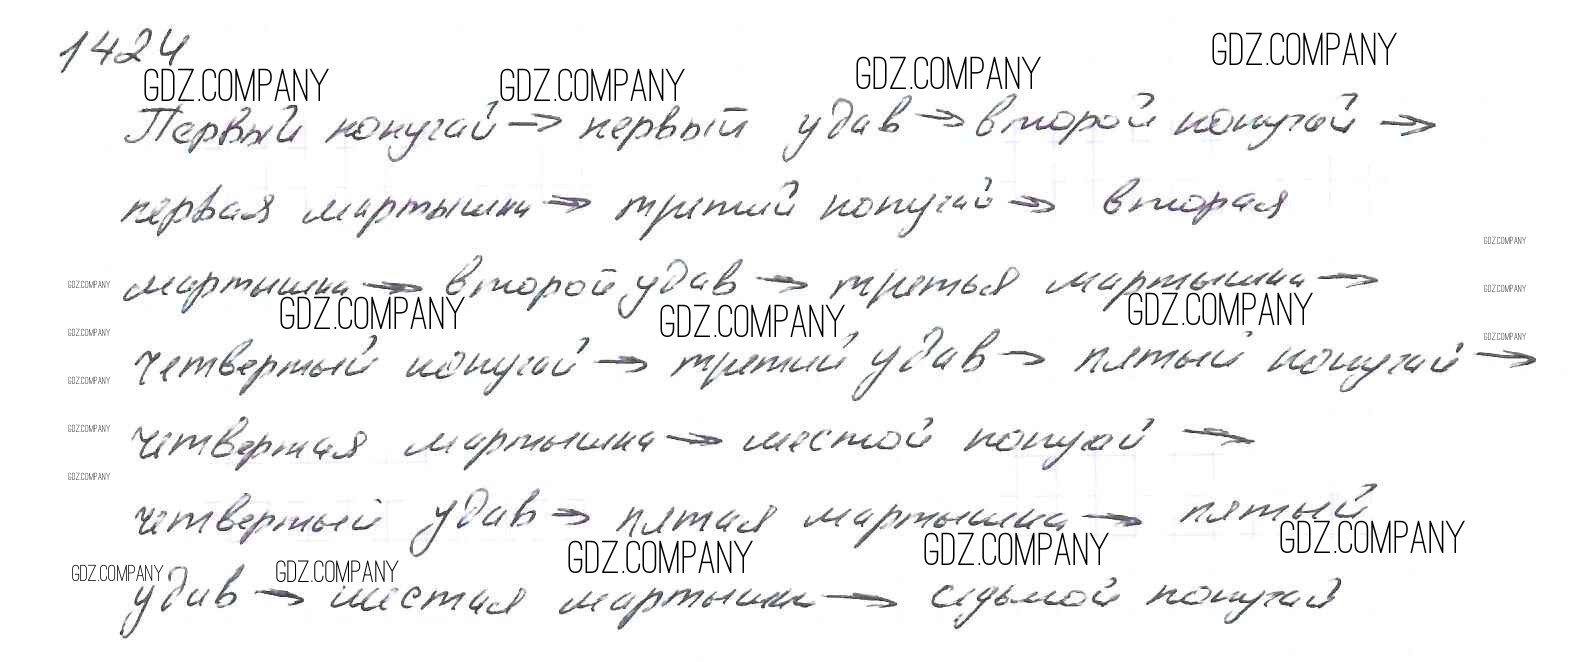 1424
GDZ.COMPANY GDZ.COMPANY GDZ.COMPANY GDZ.COMPANY
Первый попугай → первый удав → второй попугай →
первая мартышка → третий попугай → вторая
GDZ.COMPANY
мартышка → второй удав → третья мартышка →
GDZ.COMPANY GDZ.COMPANY
GDZ.COMPANY GDZ.COMPANY GDZ.COMPANY
GDZ.COMPANY GDZ.COMPANY
четвертый попугай → третий удав → пятый попугай →
GDZ.COMPANY
четвертая мартышка → шестой попугай →
GDZ.COMPANY
GDZ.COMPANY
четвертый удав → пятая мартышка → пятый
GDZ.COMPANY GDZ.COMPANY GDZ.COMPANY GDZ.COMPANY GDZ.COMPANY
удав → шестая мартышка → седьмой попугай